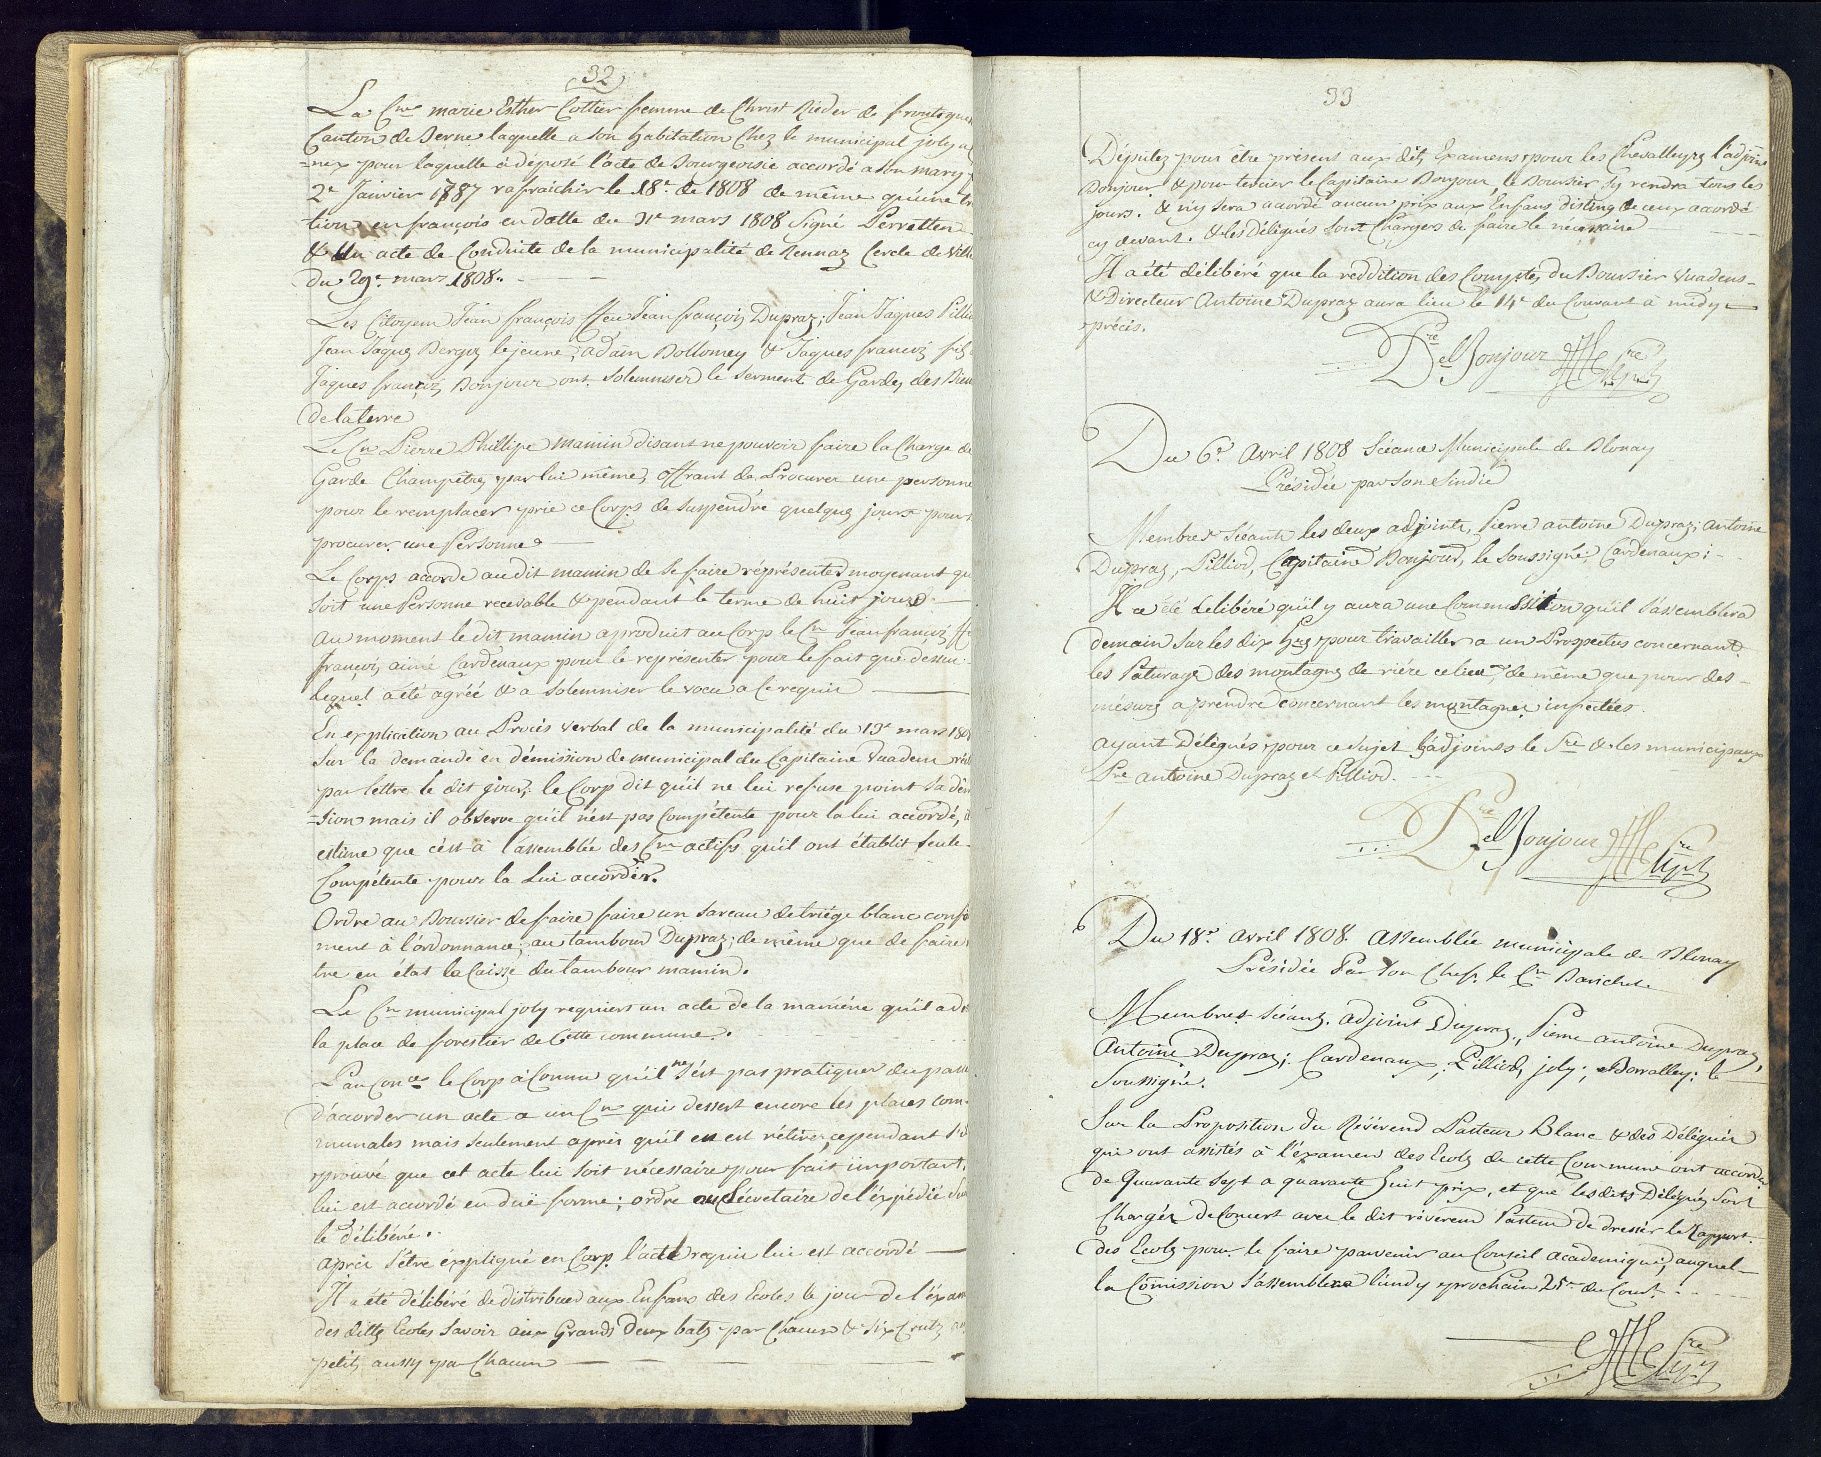 32
La Cne marie Esther Cottier femme de Christ Rieder de
Canton de Berne laquelle a son habitation Chez le municipal joly a
=nex pour laquelle à déposé l'acte de Bourgeoisie accordé a son mary
2e Janvier 1787 rafraichir le 18e de 1808 de même qu'une
tion en françois en datte du 31e mars 1808 Signé Perretten
& Un acte de Conduite de la municipalité de Rennaz Cercle de Ville
du 29e mars 1808.
Les Citoyens Jean françois ffeu Jean françois Dupraz; Jean Jaques Pillio
Jean Jaques Berguer lejeune; adam Bottomey & Jaques francois fils
Jaques francois Bonjour ont Solemniser le Serment de Gardes des Bien
de la terre
Le Cn Pierre Phillipe mamin disant ne pouvoir faire la Charge de
Garde Champêtre par lui même, offrant de Procurer une personne
pour le remplacer prie ce Corps de Suspendre quelques jours pour
procurer une Personne
Le Corps accorde au dit mamin de se faire réprésenter moyenant qu
soit une Personne recevable & pendant le terme de huit jours
au moment le dit mamin a produit au Corp le Cn Jean francois ff
françois aimé Cardenaux pour le représenter pour le fait que dessu
lequel a été agréé & a Solemniser le voeu a Ce requis
En explication au Procès verbal de la municipalité du 13e mars 180
Sur la demande en démission de municipal du Capitaine Vuadens
par lettre le dit jour; le Corp dit qu'il ne lui refuse point Sa dem
=sion mais il observe qu'il n'est pas Compétente pour la lui accordé,
estime que c'est à l'assemblée des Cns actifs qu'il ont établit Seule
Compétente pour la Lui accorder.
Ordre au Boursier de faire faire un Sareau de triége blanc conf
ment à l'ordonnance; au tambour Dupraz; de même que de faire
tre en état la Caisse du tambour mamin.
Le Cn municipal joly requiert un acte de la maniére qu'il a de
la place de forestier de Cette commune.
le Corp à Connu qu'il ne s'est pas pratiquer du passé
d'accorder un acte a un Cn qui dessert encore les places com=
munales mais seulement après qu'il en est rétiré, cependant
prouvé que cet acte lui soit nécessaire pour fait important,
lui est accordé en duë forme; ordre au Sécretaire de l'éxpédié
le délibéré.
après s'être éxpliqué en Corp. l'acte requis lui est accordé
Il a été délibéré de distribuer aux Enfans des Ecoles le jour de l'éxam
des dittes Ecoles Savoir aux Grands Deux batz par Chacun & Six Crutz
petits aussy par Chacun
33
Députez pour être présent aux dits Examens pour les Chevalleyres l'adjoint
Bonjour & pour tercier le Capitaine Bonjour, le Boursier s'y rendra tous les
jours. & n'y sera accordé aucun prix aux Enfans disting de ceux accordé
cy devant. & les Délégués sont Chargers de faire le nécessaire
Il a été délibéré que la reddition des Comptes du Boursier Vuadens
& Directeur Antoine Dupraz aura lieu le 14e du Courant a midy
précis.
Bonjour
Du 6e Avril 1808 Séance Municipale de Blonay
Présidée par Son Sindic
Membres Séants les deux adjoints, Pierre antoine Dupraz; antoine
Dupraz, Pilliod, Capitaine Bonjour, le Soussigné; Cardenaux;
Il a été délibéré qu'il y aura une Commission qu'il s'assemblera
demain Sur les dix hres pour travailler a un Prospectus concernant
les Paturage des montagnes de riére ce lieu de même que pour des
mésures a prendre concernant les montagnes infectées.
ayant Délégués pour ce Sujet l'adjoint le Sre & les municipaux
Pre antoine Dupraz et Pilliod.
Bonjour
Du 18e Avril 1808 Assemblée municipale de Blonay
Présidée Par Son Chef. le Cn
Membres Séants. adjoint Dupraz, Pierre antoine Dupraz,
Antoine Dupraz; Cardenaux; Pilliod, joly; le
Soussigné.
Sur la Proposition du Révérend Pasteur Blanc & des Délégués
qui ont assistés à l'éxamen des Ecoles de cette Commune ont accordé
de Quarante Sept a quarante huit prix, et que lesdits Délégués Sont
Chargés de Concert avec le dit révérend Pasteur de dresser le Rapport
des Ecoles pour le faire parvenir au Conseil académique, auquel
la Comission s'assemblera lundy prochain 25e du Court.